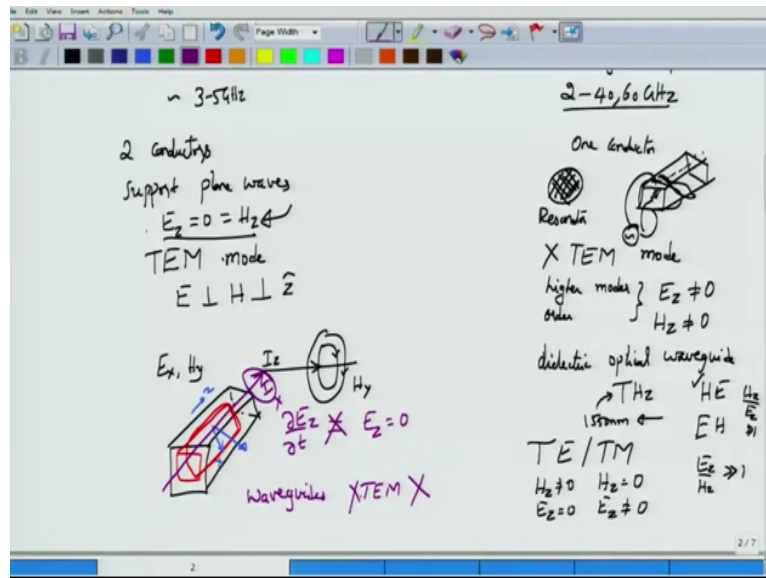 Edit View Insert Actions Tools Help
Page Width
B I
~ 3-5GHz
2 conductors
Support plane waves
E_z = 0 = H_z
TEM mode
E ⊥ H ⊥ ẑ
E_x, H_y
I_z
H_y
∂E_z/∂t
E_z = 0
waveguides X TEM X
2-40,60 GHz
One conductor
X TEM mode
higher modes } E_z ≠ 0
order H_z ≠ 0
dielectric optical waveguide
THz
1550nm
✓ HE H_z/E_z
EH
E_z/H_z >> 1
TE/TM
H_z ≠ 0 H_z = 0
E_z = 0 E_z ≠ 0
2 / 7
2